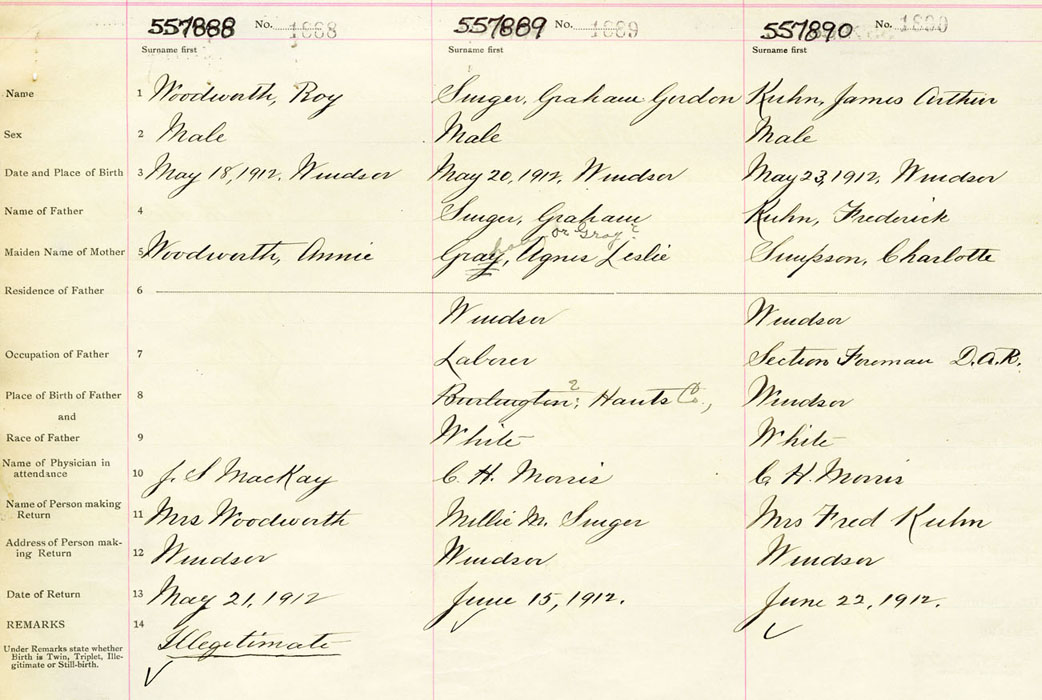 557888 No. 1668 557889 No. 1669 557890 No.
Surname first Surname first Surname first
Name 1 Woodworth, Roy Singer, Grahame Gordon Kuhn, James Arthur
Sex 2 Male Male Male
Date and Place of Birth 3 May 18, 1912, Windsor May 20, 1912, Windsor May 23, 1912, Windsor
Name of Father 4 Singer, Grahame Kuhn, Frederick
or Gray?
Maiden Name of Mother 5 Woodworth, Annie Gray, Agnes Leslie Simpson, Charlotte
Residence of Father 6
Windsor Windsor
Occupation of Father 7 Laborer Section Foreman D.A.R.
Place of Birth of Father 8 Burlington, ? Hants Co., Windsor
and
Race of Father 9 White White
Name of Physician in
attendance 10 J. S MacKay C. H. Morris C. H. Morris
Name of Person making
Return 11 Mrs Woodworth Millie M. Singer Mrs Fred Kuhn
Address of Person mak-
ing Return 12 Windsor Windsor Windsor
Date of Return 13 May 21, 1912 June 15, 1912. June 22, 1912.
REMARKS 14
Illegitimate
Under Remarks state whether
Birth is Twin, Triplet, Ille-
gitimate or Still-birth.